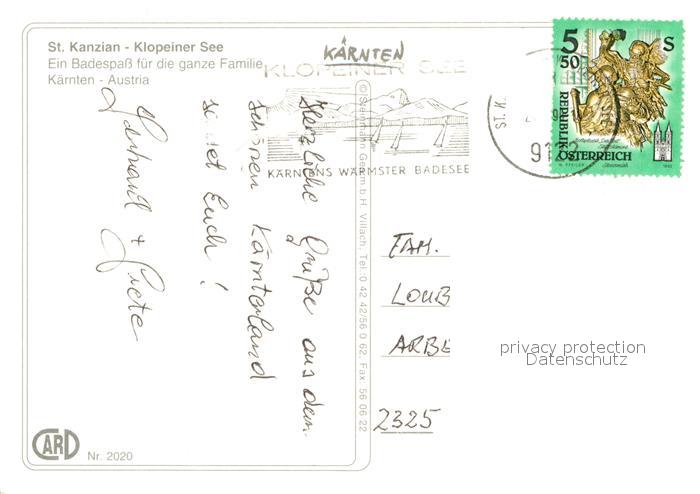 St. Kanzian - Klopeiner See
Ein Badespaß für die ganze Familie
Kärnten - Austria
KÄRNTEN
KLOPEINER SEE
KÄRNTENS WÄRMSTER BADESEE
ST. K
912
5 50 S
REPUBLIK
ÖSTERREICH
Herzliche Grüße aus dem
schönen Kärnterland
Euch!
+ Grete
© Steinmann Ges.m.b.H. Villach. Tel. 0 42 42/56 0 62. Fax: 56 06 22
FAM.
LOUB
ARBE
2325
privacy protection
Datenschutz
CARD
Nr. 2020